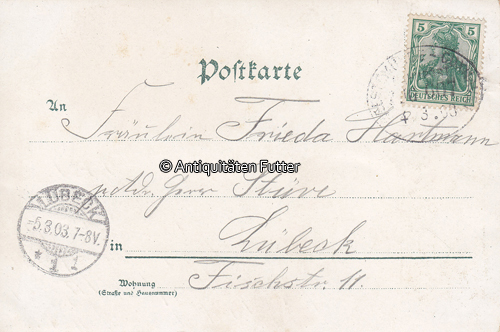 5
DEUTSCHES REICH
Postkarte
An
Fräulein Frieda Hartmann
© Antiquitäten Futter
p. Adr. Herr Stüve
LÜBECK
-5.3.03. 7-8V.
* 1 1
in Lübeck
Wohnung
(Straße und Hausnummer)
Fischstr. 11.